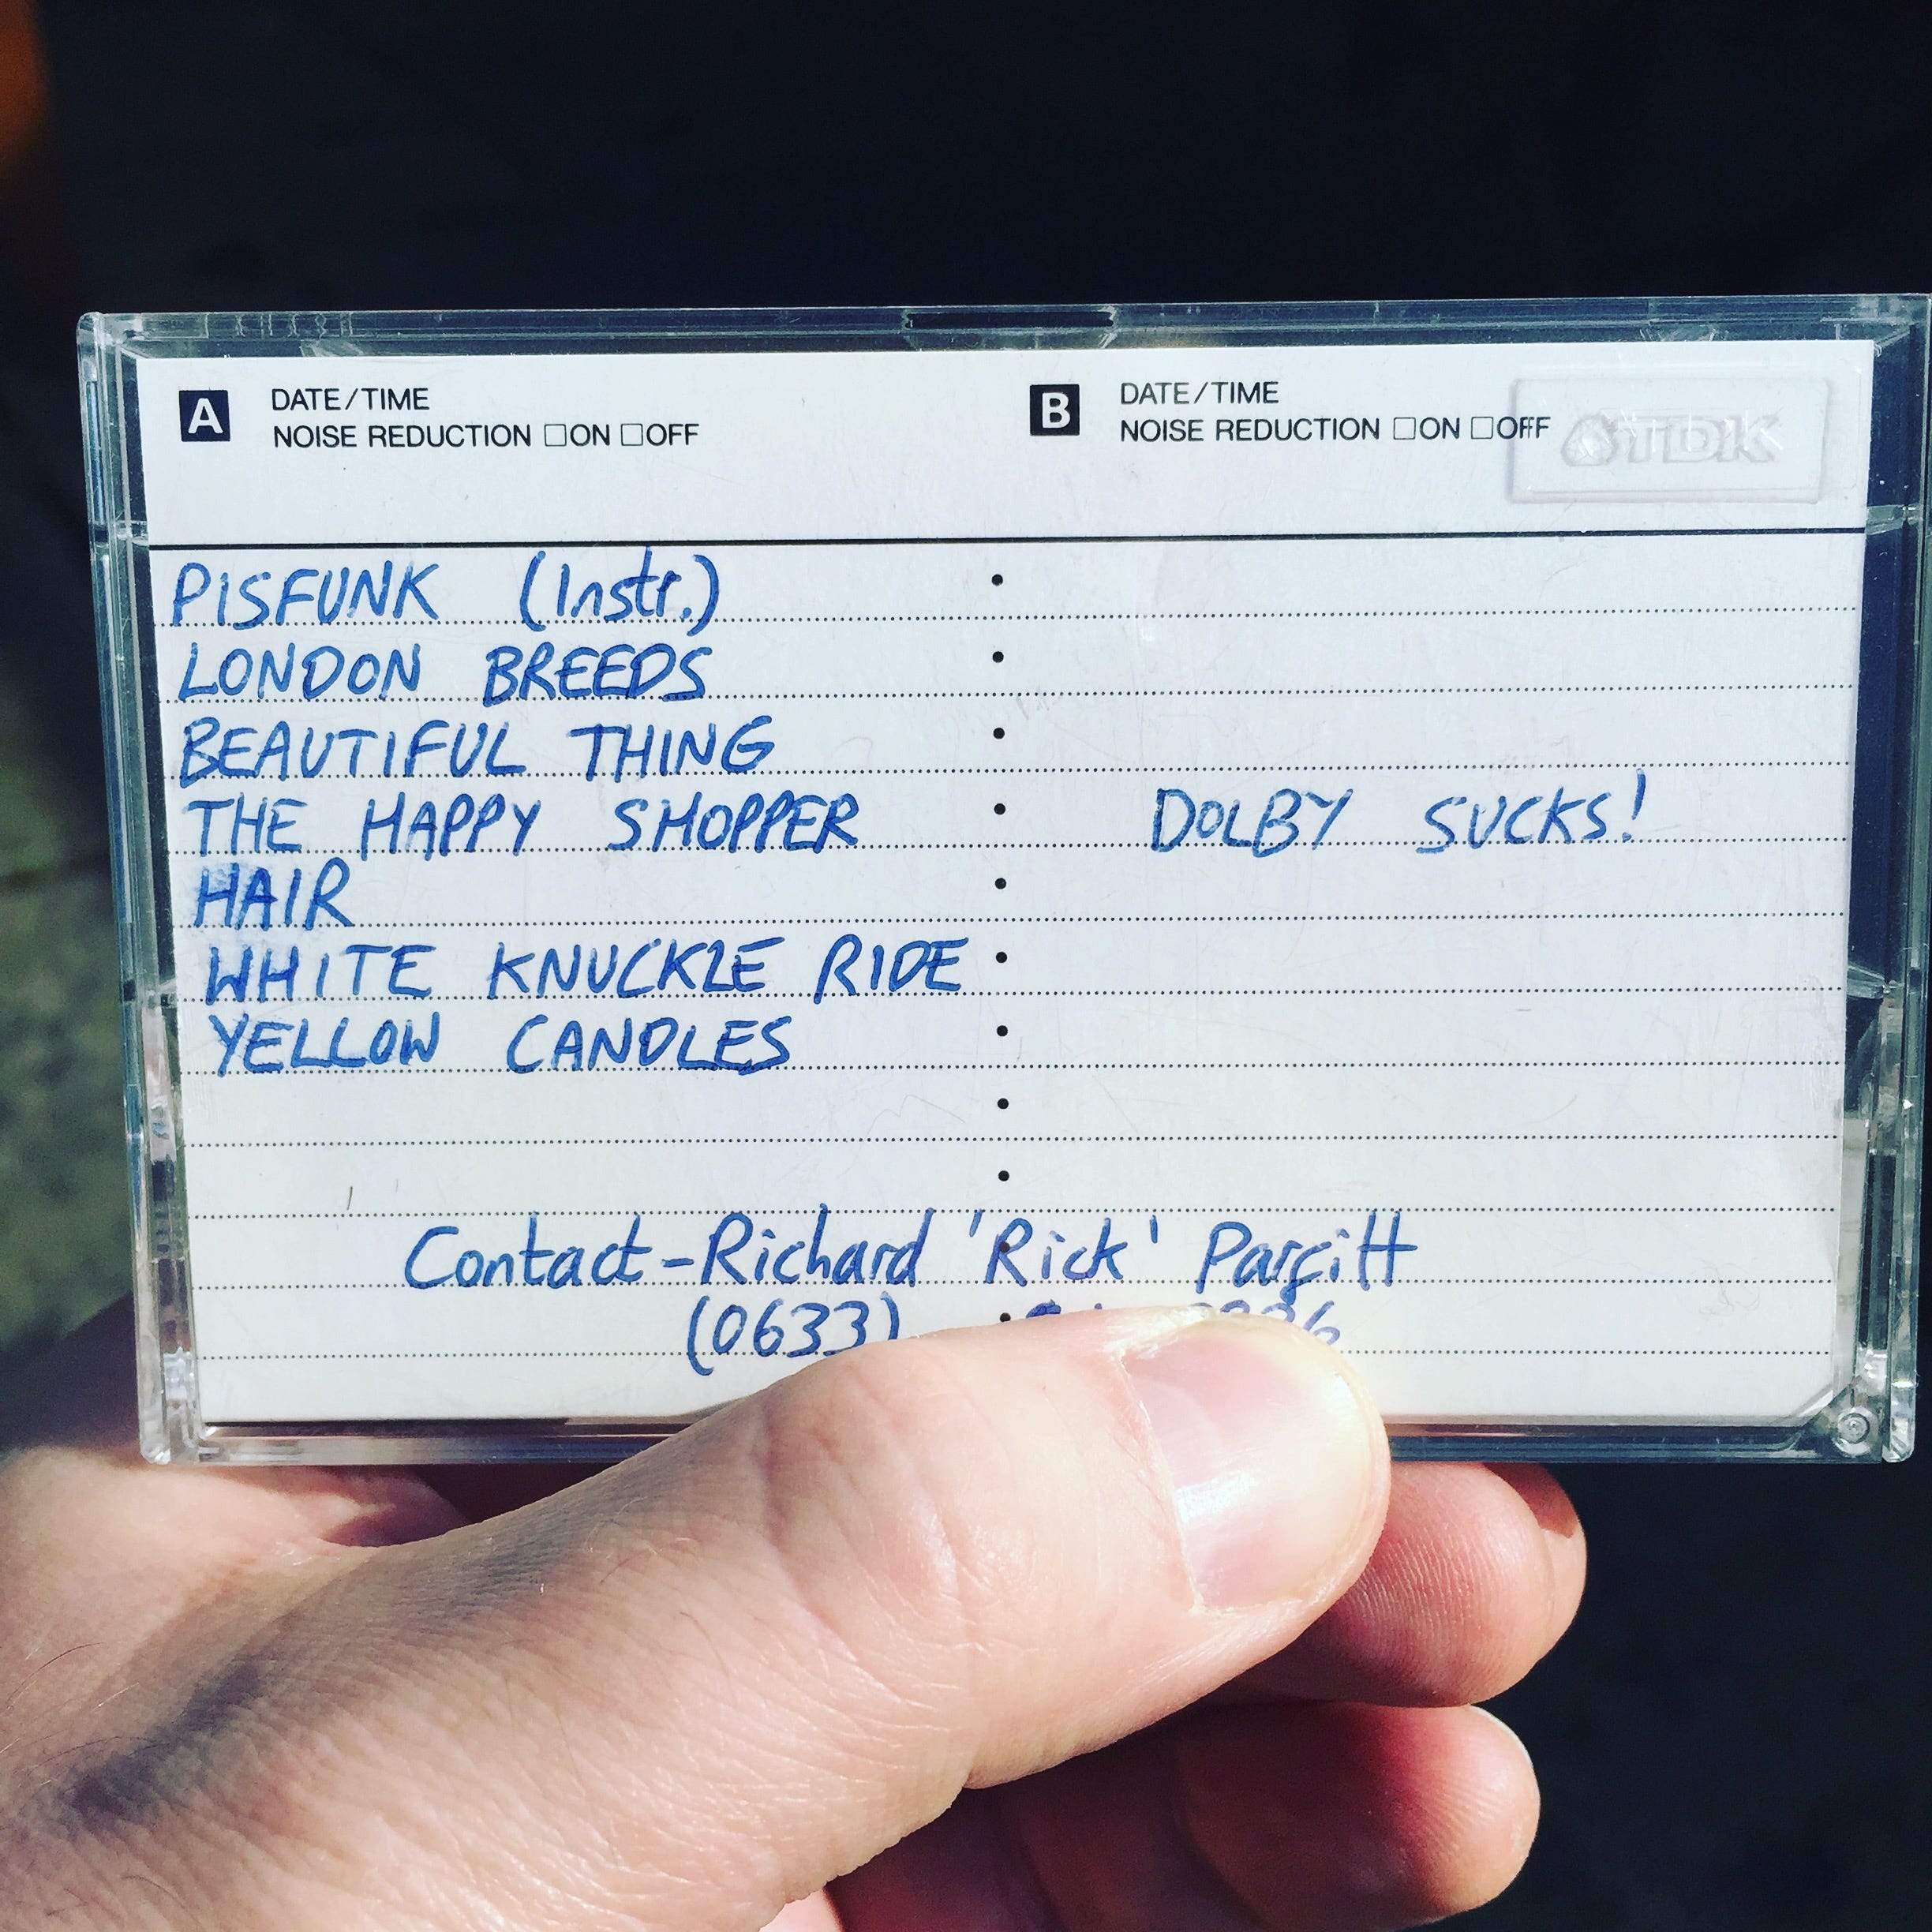 A DATE/TIME
NOISE REDUCTION ☐ON ☐OFF
B DATE/TIME
NOISE REDUCTION ☐ON ☐OFF
TDK
PISFUNK (Instr.)
LONDON BREEDS
BEAUTIFUL THING
THE HAPPY SHOPPER
DOLBY SUCKS!
HAIR
WHITE KNUCKLE RIDE
YELLOW CANDLES
Contact-Richard 'Rick' Parfitt
(0633)